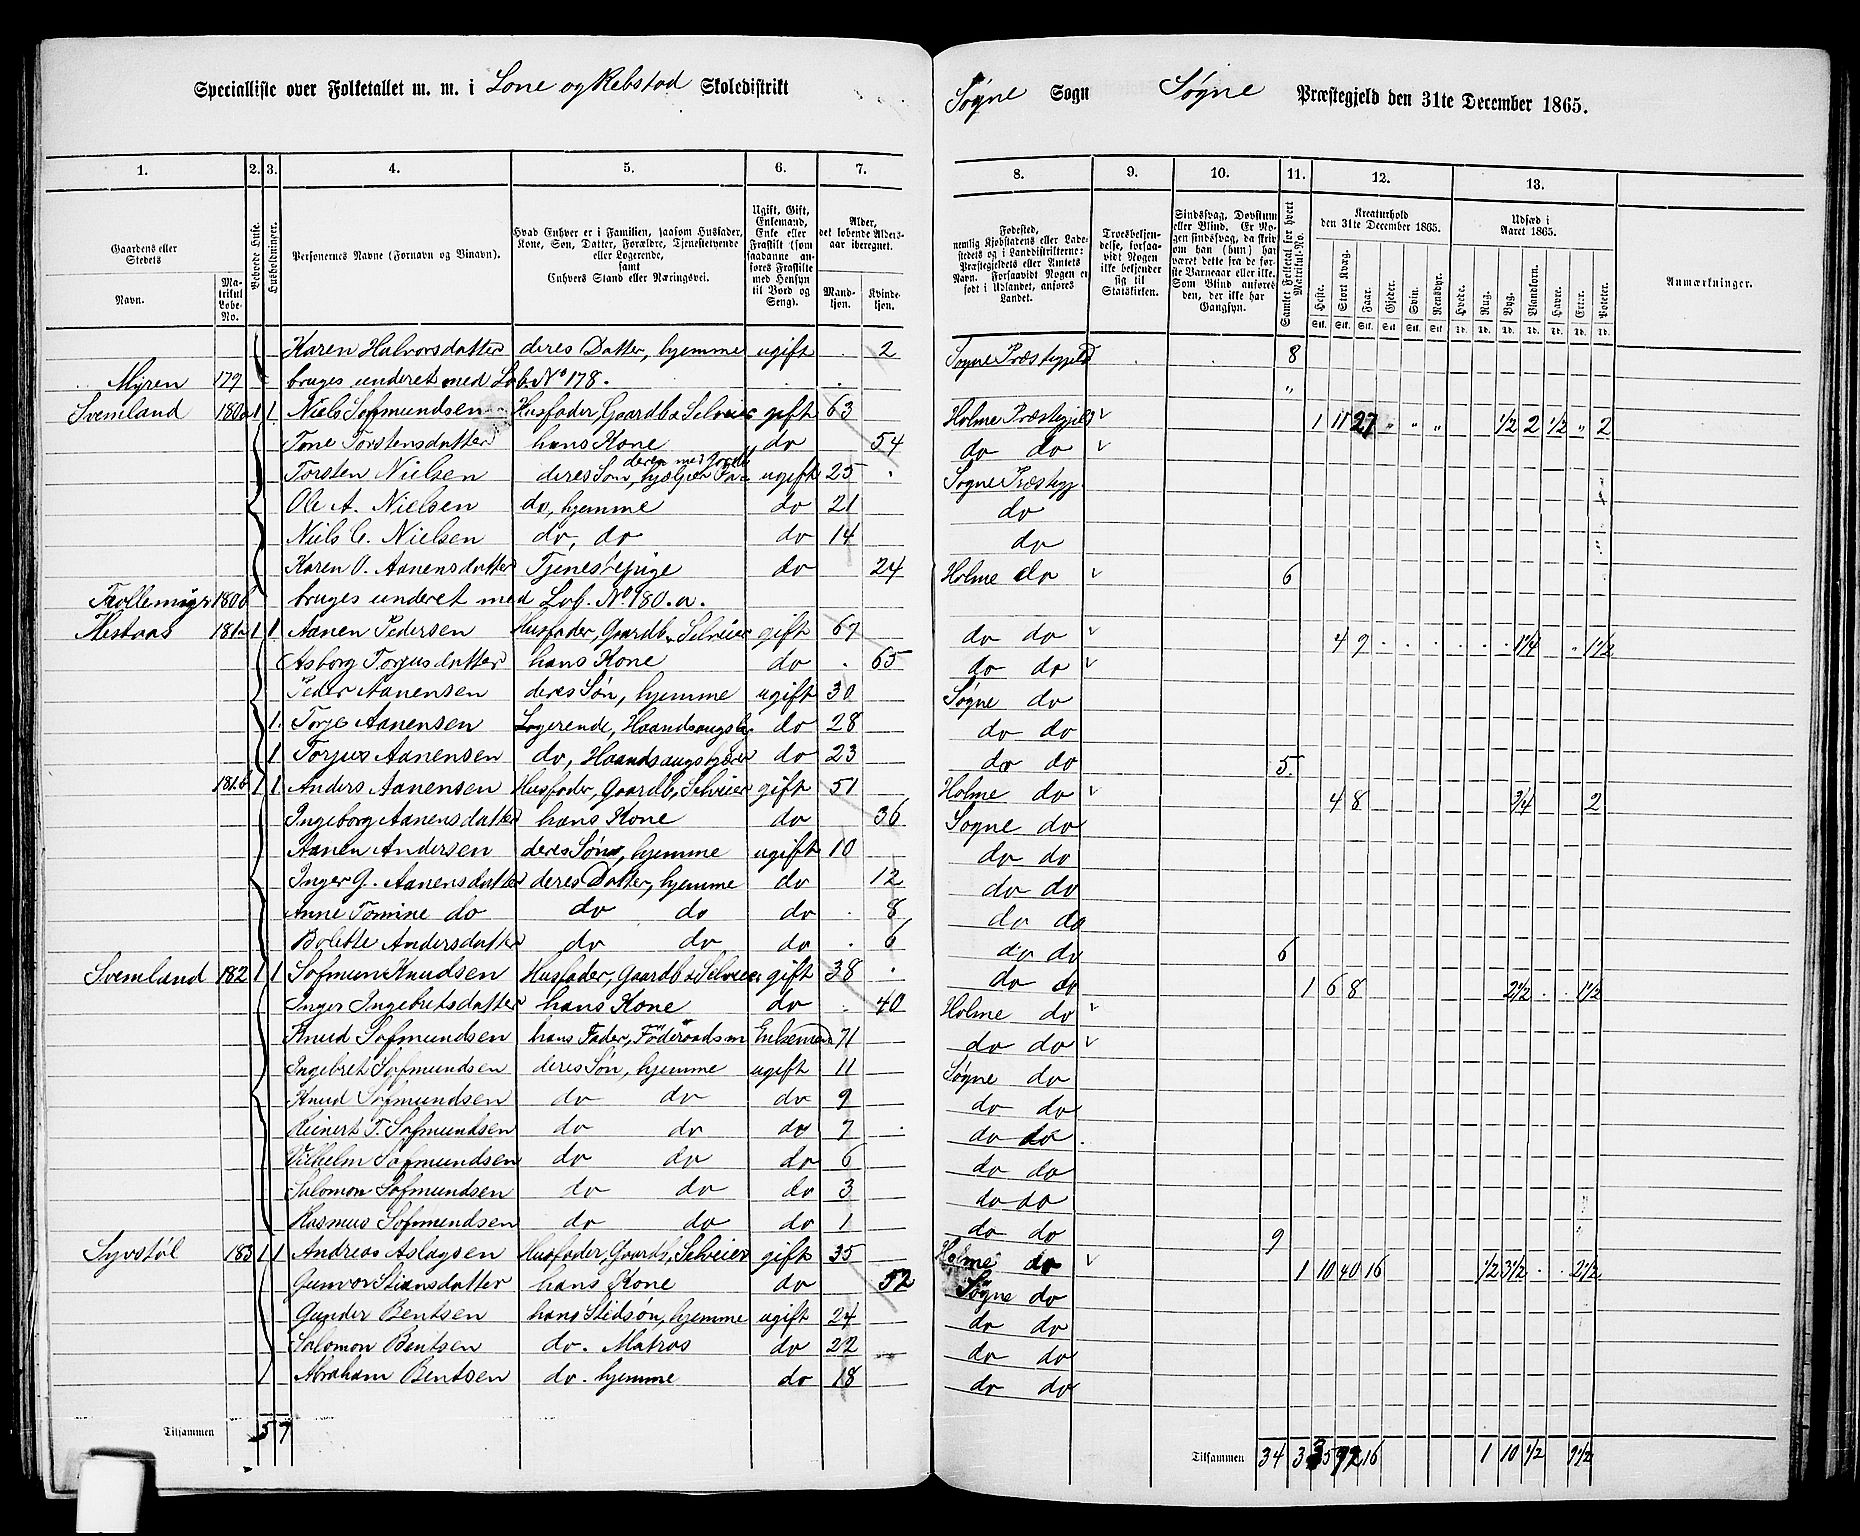 Specialliste over Folketallet m. m. i Lone og Rebstad Skoledistrikt
Søgne Sogn Søgne Præstegjeld den 31te December 1865.
1. 2. 3. 4. 5. 6. 7. 8. 9. 10. 11. 12. 13.
Gaardens eller Stedets
Navn.
Matrikul Løbe-No.
Beboede Huse.
Husholdninger.
Personernes Navne (Fornavn og Binavn).
Hvad Enhver er i Familien, saasom Husfader, Kone, Søn, Datter, Forældre, Tjenestetyende eller Logerende, samt Enhvers Stand eller Næringsvei.
Ugift, Gift, Enkemand, Enke eller Fraskilt (som saadanne anføres Fraskilte med Hensyn til Bord og Seng).
Alder, det løbende Aldersaar iberegnet.
Mandkjøn. Kvindekjøn.
Fødested, nemlig Kjøbstadens eller Ladestedets og i Landdistrikterne: Præstegjeldets eller Amtets Navn. Forsaavidt Nogen er født i Udlandet, anføres Landet.
Troesbekjendelse, forsaavidt Nogen ikke bekjender sig til Statskirken.
Sindssvag, Døvstum eller Blind. Er Nogen sindssvag, da skrives om han (hun) har været dette fra de første Barneaar eller ikke. Som Blind anføres den, der ikke har Gangsyn.
Samlet Folketal for hvert Matrikul-No.
Kreaturhold den 31te December 1865.
Heste. Stort Kvæg. Faar. Gjeder. Svin. Rensdyr.
Udsæd i Aaret 1865.
Hvede. Rug. Byg. Blandkorn. Havre. Erter. Poteter.
Anmærkninger.
Karen Halvorsdatter deres Datter, hjemme ugift 2 Sogne Præstegjeld 8
Myren 179 bruges underet med Lob. No 178. "
Svemland 180a 1 1 Niels Sofmundsen Husfader, Gaardb. Selveier gift 63 Holme Præstegjeld 1 11 27 " " " 1/2 2 1/2 " 2
Tone Torstensdatter hans Kone do 54 do do
Torsten Nielsen deres Søn, hjælper Fa- deren med Gaardb. ugift 25 Sogne Præstegj.
Ole A. Nielsen do, hjemme do 21 do
Niels C. Nielsen do, do do 14 do
Karen O. Aanensdatter Tjenestepige do 24 Holme do 6
Trollemyr 180b bruges underet med Lob. No. 180. a.
Hestaas 181a 1 1 Aanen Pedersen Husfader, Gaardb. Selveier gift 67 do do 4 9 1/4 " 1 1/2
Asborg Torjusdatter hans Kone do 65 do do
Peder Aanensen deres Søn, hjemme ugift 30 Søgne do
1. Torje Aanensen Logerende, Haandsaugsb do 28 do do
1 Torjus Aanensen do, Haandsaugsbjder do 23 do do 5.
181b 1 1 Anders Aanensen Husfader, Gaardb. Selveier gift 51 Holme do 4 8 3/4 2
Ingeborg Aanensdatter hans Kone do 36 Sogne do
Aanen Andersen deres Søn, hjemme ugift 10 do do
Inger G. Aanensdatter deres Datter, hjemme do 12 do do
Anne Tomine do do do do 8 do do
Bolette Andersdatter do do do 6 do do 6
Svemland 182 1 1 Sofmun Knudsen Husfader, Gaardb & Selveier gift 38 do do 1 6 8 2 1/2 1 1/2
Inger Ingebretsdatter hans Kone do 40 Holme do
Knud Sofmundsen hans Fader, Föderaadsm Enkemand 71 do do
Ingebret Sofmundsen deres Søn, hjemme ugift 11 Søgne do
Knud Sofmundsen do do do 9 do do
Reinert T. Sofmundsen do do do 7 do do
Vilhelm Sofmundsen do do do 6 do do
Salomon Sofmundsen do do do 3 do do
Rasmus Sofmundsen do do do 1 do do 9
Syvstøl 183 1 1 Andreas Aslagsen Husfader, Gaardb. Selveier gift 35 Holme do 1 10 40 16 1/2 3 1/2 2 1/2
Gunvor Stiansdatter hans Kone do 52 Søgne do
Gunder Bentsen hans Stedsøn, hjemme ugift 24 do do
Salomon Bentsen do. Matros do 22 do do
Abraham Bentsen do. hjemme do 18 do do
Tilsammen 5 7 Tilsammen 34 3 35 92 16 1 10 1/2 9 1/2